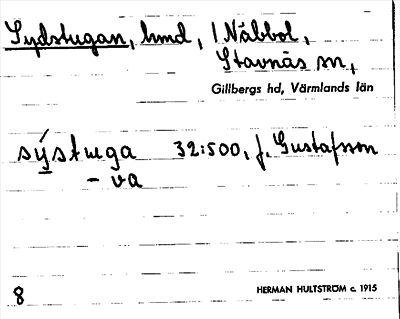 Sydstugan, hmd, 1 Näbbol,
Stavnäs sn,
Gillbergs hd, Värmlands län
sýstuga 32:500, f. Gustafsson
- va
8
HERMAN HULTSTRÖM c. 1915